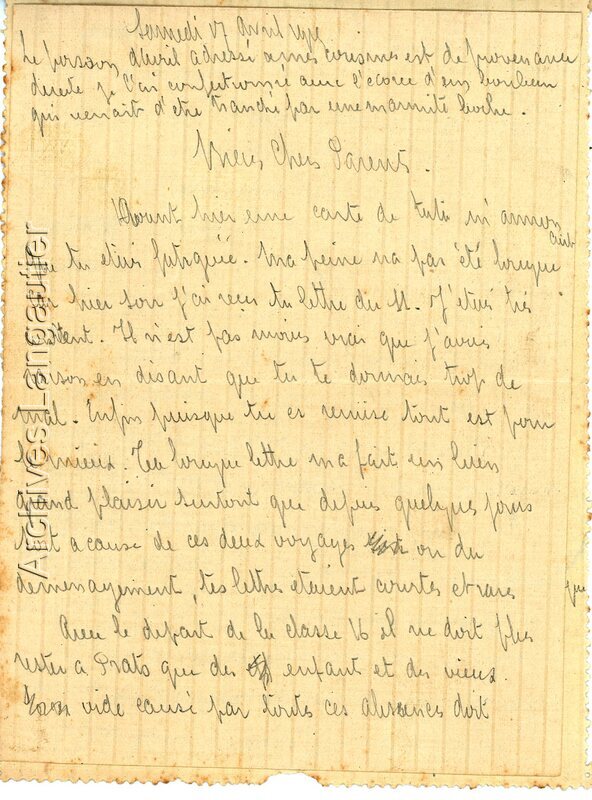 Samedi 17 Avril
Le poisson d'Avril adressé a mes cousines est de provenance
directe je l'ai confectionné avec l'écorce d'un bouleau
qui venait d'etre tranché par une marmite boche.
Bien Chers Parents.
Avant hier une carte de tata m'annon
cait
que tu étais fatiguée. Ma peine n'a pas été longue
hier soir j'ai recu ta lettre du 11. J'etais très
content. Il n'est pas moins vrai que j'avais
raison en disant que tu te donnais trop de
mal. Enfin puisque tu es remise tout est pour
le mieux. Ta longue lettre m'a fait un bien
grand plaisir surtout que depuis quelques jours
a cause de ces deux voyages ou du
demenagement, tes lettres etaient courtes et rares
Avec le depart de la classe 16 il ne doit plus
rester a Prato que des enfant et des vieux.
vide causé par toutes ces absences doit
que
Archives-Langautier